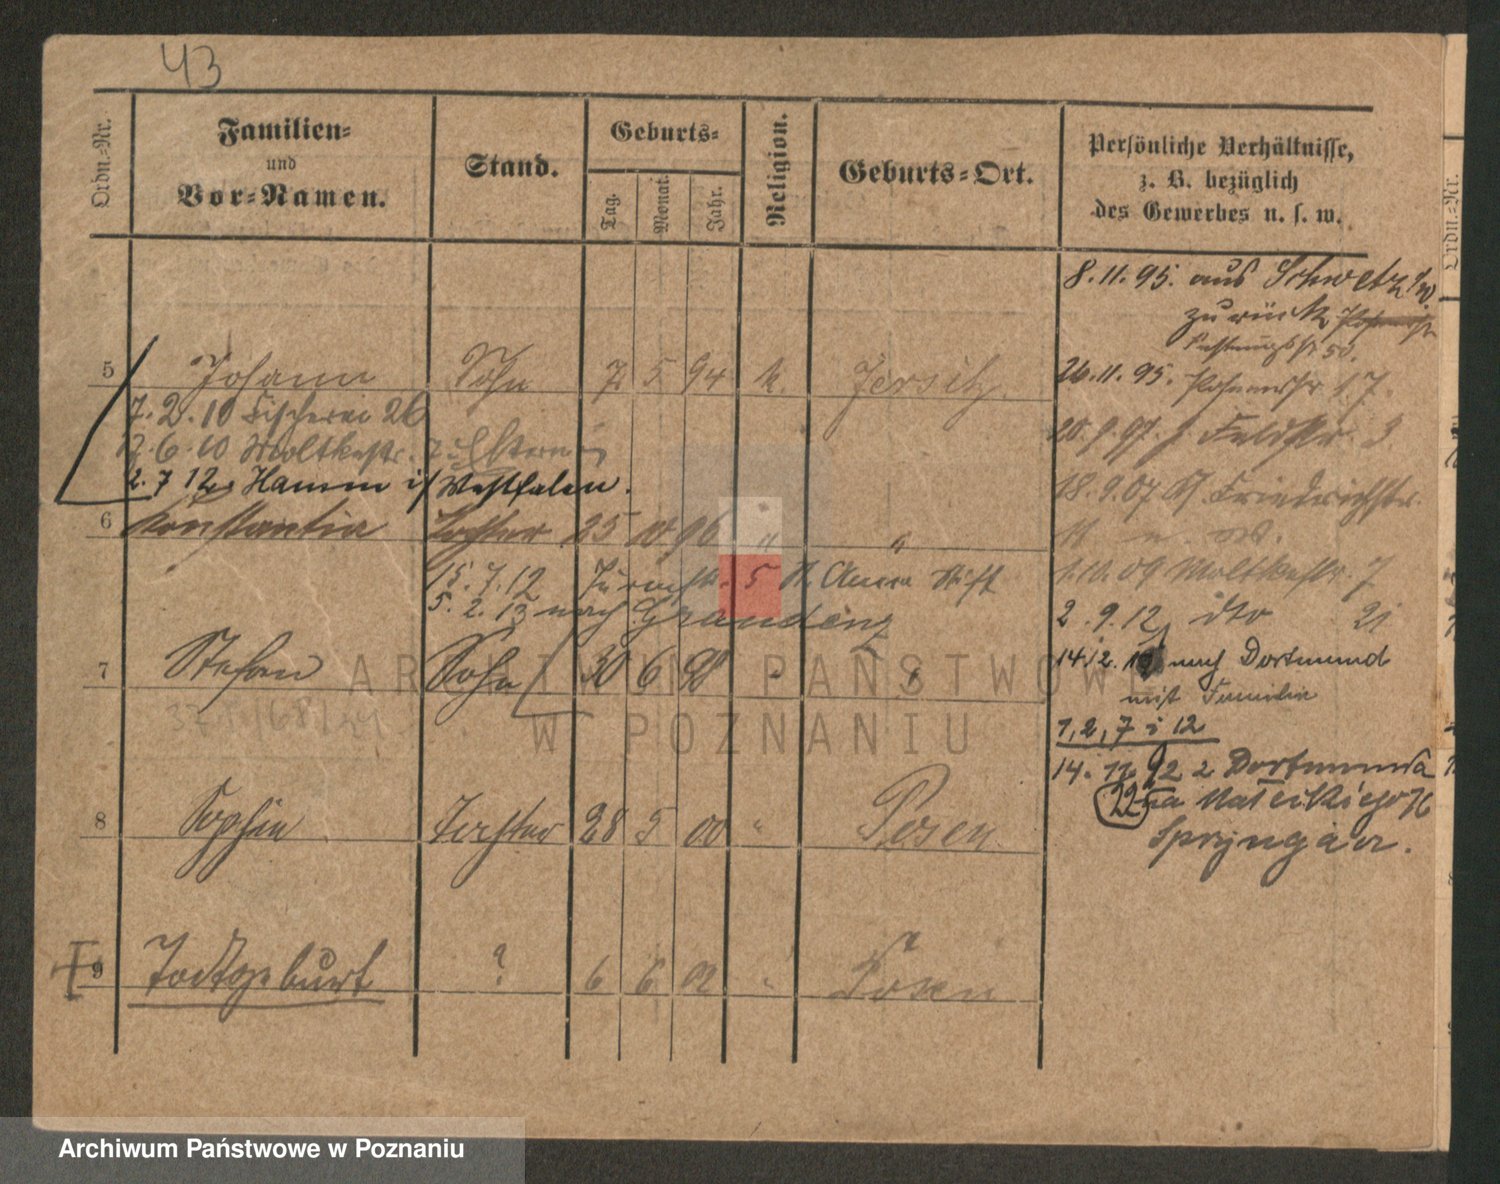 43
Ordn.-Nr.
Familien-
und
Vor-Namen.
Stand.
Geburts-
Tag.
Monat.
Jahr.
Religion.
Geburts-Ort.
Persönliche Verhältnisse,
z. B. bezüglich
des Gewerbes u. s. w.
Ordn.-Nr.
8.11.95. aus Schwetz
zurück
26.11.95. 17.
5 Johann Sohn 7 5 94 k. Jersitz.
7.2.10 Fischerei 26
12.6.10 Moltkestr. 7 z. Eltern
2.7 12 Hamm i/Westfalen.
20.9.97. Feldstr. 3
18.9.07 Friedrichstr.
6 Konstantia Tochter 25 10 96 " "
15.7.12 5 St. Anna Stift
5.2.13 nach Graudenz
1.10.09 Moltkestr. 7
2.9.12 dto 21
7 Stefan Sohn 30 6 98 " "
14.12. nach Dortmund
mit Familie
1,2,7 i 12
14. 11. 22 z Dortmunda
22 na Matejkiego
Sprzyngia.
8 Sophie Tochter 28 5 00 " Posen.
9 Todtgeburt ? 6 6 02 " Posen
ARCHIWUM PAŃSTWOWE
W POZNANIU
Archiwum Państwowe w Poznaniu